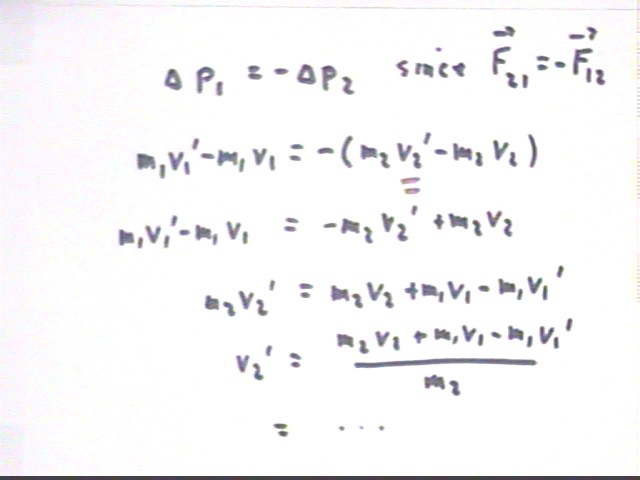 Δ P₁ = -Δ P₂ since F⃗₂₁ = -F⃗₁₂
m₁v₁' - m₁v₁ = -(m₂v₂' - m₂v₂)
=
m₁v₁' - m₁v₁ = -m₂v₂' + m₂v₂
m₂v₂' = m₂v₂ + m₁v₁ - m₁v₁'
m₂v₂ + m₁v₁ - m₁v₁'
v₂' =
m₂
= ...